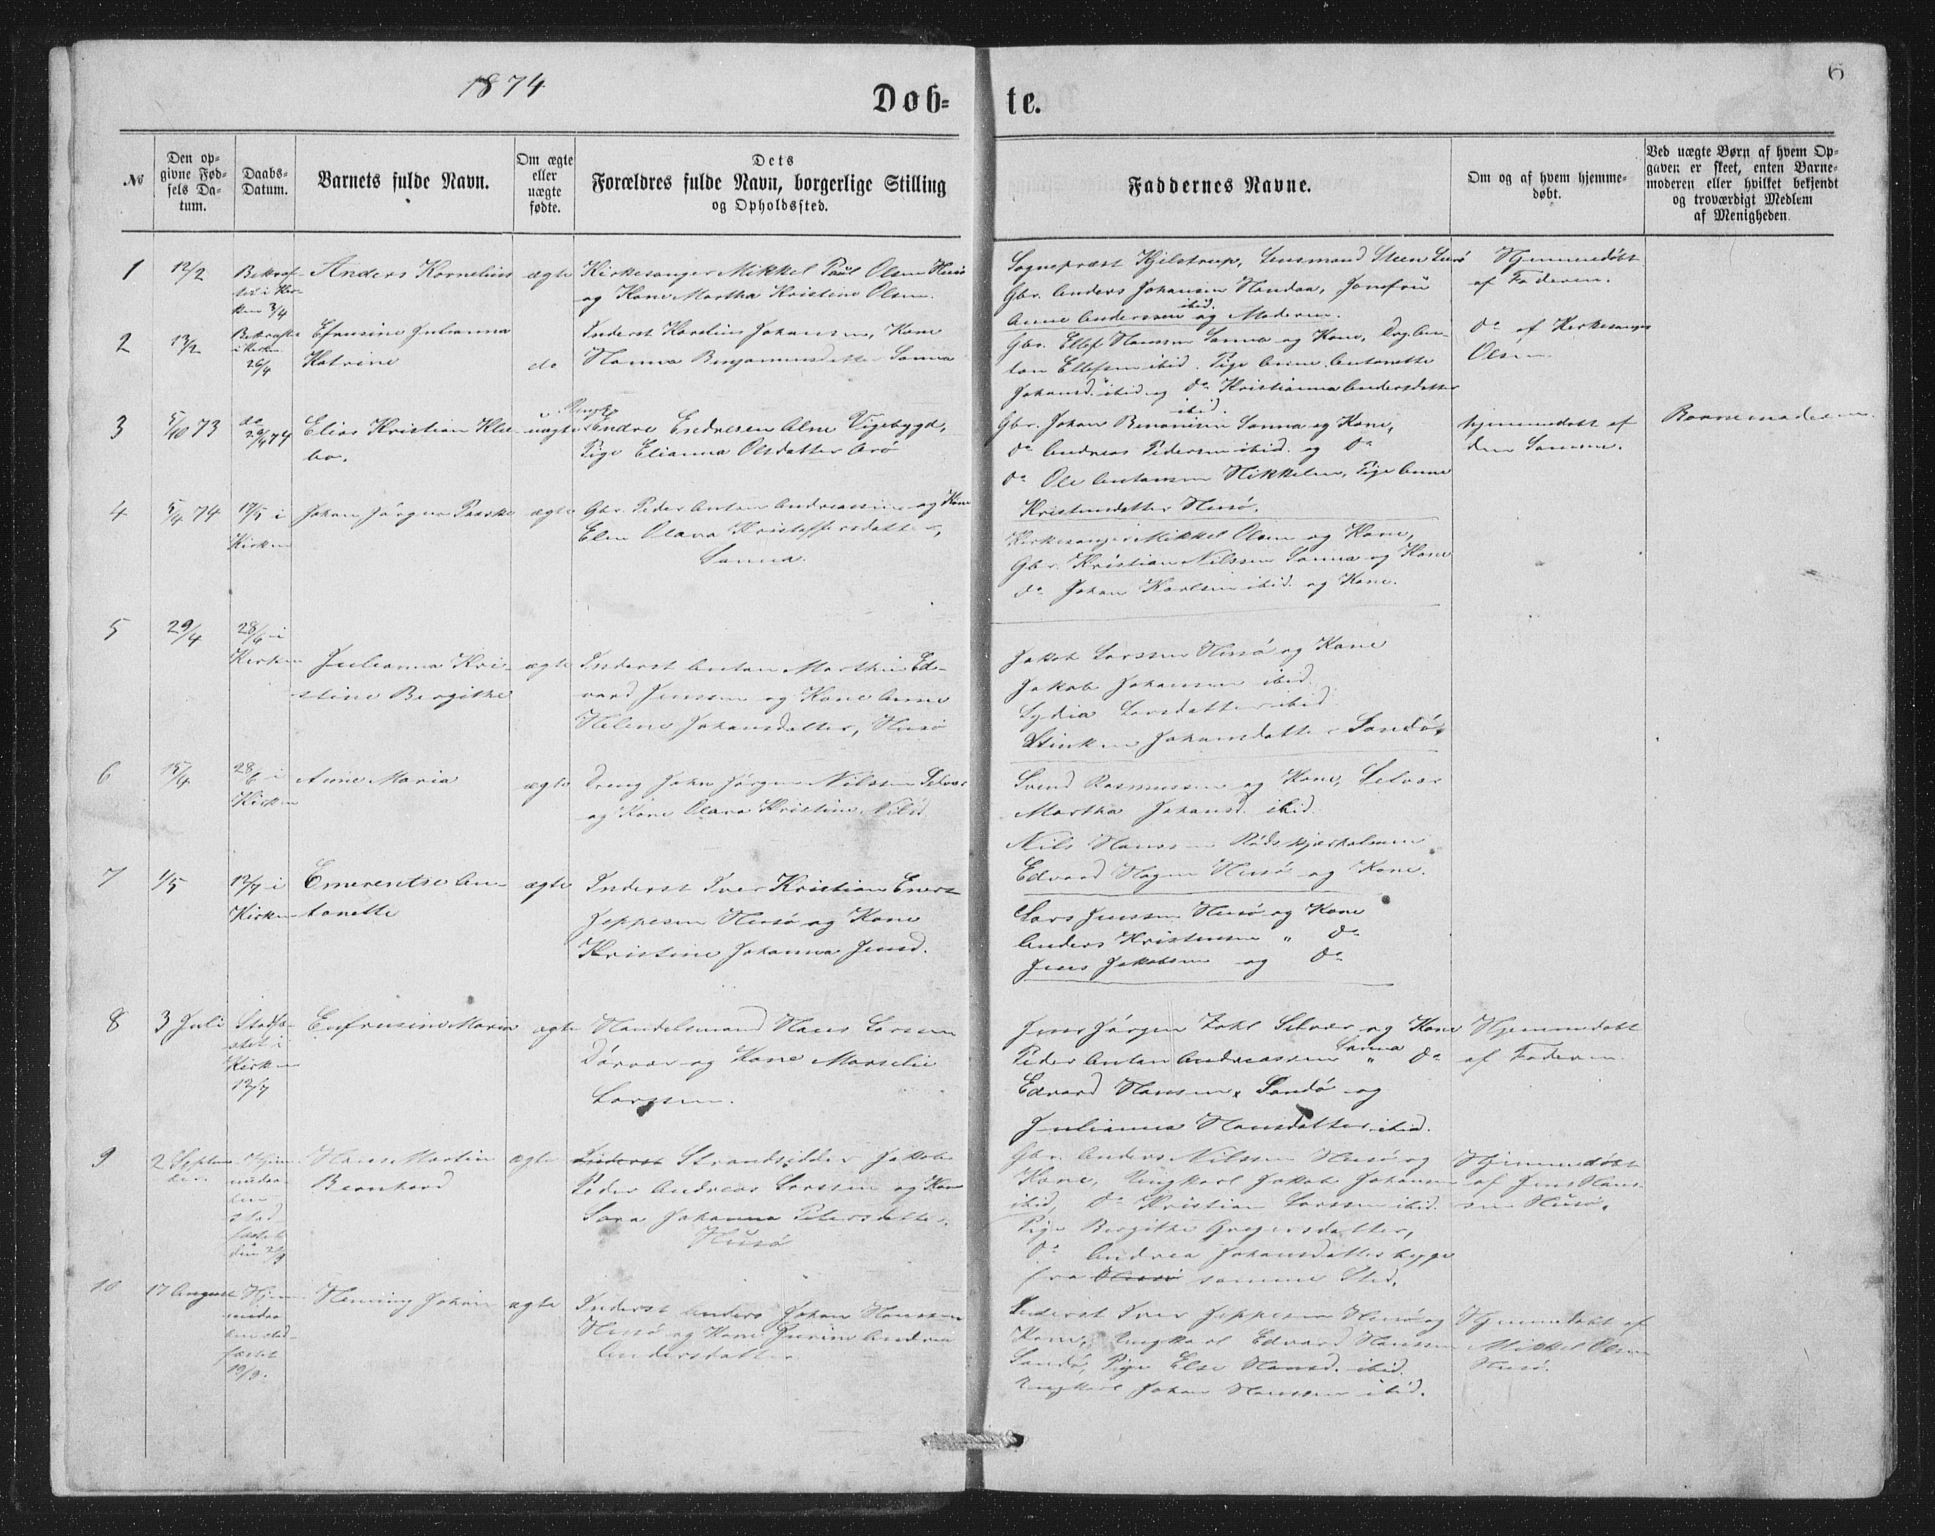 1874
6
Døb=
te.
№
Den op=
givne Fød=
sels Da=
tum.
Daabs=
Datum.
Barnets fulde Navn.
Om ægte
eller
uægte
fødte.
Dets
Forældres fulde Navn, borgerlige Stilling
og Opholdssted.
Faddernes Navne.
Om og af hvem hjemme=
døbt.
Ved uægte Børn af hvem Op=
gaven er skeet, enten Barne=
moderen eller hvilket bekjendt
og troværdigt Medlem
af Menigheden.
1
12/2
Bekræf-
tet i Kir-
ken 3/4
Anders Kornelius
ægte
Kirkesanger Mikkel Paul Olsen Husø
og Kone Martha Kristine Olsen.
Sognepræst Kjelstrup, Lensmand Steen
Gbr. Anders Johansen Jomfru
Anne Anderssen ibid. og Moderen.
Hjemmedøbt
af Faderen.
2
13/2
i Kirken
26/4
Julianna
Katrine
do
Inderst Johansen, Kone
Hanna Benjaminsdatter Sanna
Gbr. Ellef Hansen Sanna og Kone,
Ellefsen ibid. Pige Anne Antonette
Johansd. ibid og do Kristianna Andersdatter
ibid.
do af Kirkesanger
Olsen
3
5/10 73
do
26/4 74
Elias Kristian
uægte
Endre Endresen Vigebygd,
Pige Elianna Olsdatter
Gbr. Johan Benonisen Sanna og Kone,
do Andreas Pedersen ibid. og do
do Ole Antonsen Pige Anne
Kristensdatter Husø.
hjemmedøbt af
den Samme.
Barnemoderen
4
5/4 74
17/5 i
Kirken
Johan Jørgen
ægte
Gbr. Peder Anton Andreassen og Kone
Elen Olava Kristoffersdatter,
Sanna.
Kirkesanger Mikkel Olsen og Kone,
Gbr. Kristian Nilssen Sanna og Kone
do Johan Karlsen ibid. og Kone.
5
29/4
28/6 i
Kirken
Julianna Kri-
stine Bergithe
ægte
Inderst Anton Martin Ed-
vard Jenssen og Kone Anne
Helene Johansdatter, Husø
Jakob Larssen Husø og Kone
Jakob Johansen ibid.
Lydia Larsdatter ibid.
Johansdatter Sandø.
6
15/4
28/6 i
Kirken
Anne Maria
ægte
John Jørgen Nilssen Selvær
og Kone Olava Kristine Nilsd.
Svend Rasmussen og Kone, Selvær
Martha Johansd. ibid.
Nils Hanssen
Edvard Hagen Husø og Kone.
7
1/5
12/7 i
Kirken
Emerentse An-
tonette
ægte
Inderst Iver Kristian
Jeppesen Husø og Kone
Kristine Johanna Jensd.
Lars Jenssen Husø og Kone
Anders Kristensen " do
Jens Jakobsen og do
8
3 Juli
Stadfæ-
stet i
Kirken
12/7
Enfrusine Maria
ægte
Handelsmand Hans Larsen
og Kone
Larssen.
Jens Jørgen Zahl Selvær og Kone
Peder Antan Andreassen Sanna " do
Edvard Hansen, Sandø og
Julianna Hansdatter ibid.
Hjemmedøbt
af Faderen
9
2 Septem
ber
Hjem
stad
fæstet
Hans Martin
Bernhard
ægte
Inderst Strandsidder Jakob
Peder Andreas Larssen og Kone
Sara Johanna Petersdatter.
Husø
Gbr. Anders Nilssen Husø og
Kone, Ungkarl Jakob Johansen
ibid, do Kristian Larssen ibid.
Pige Bergithe Gregersdatter,
do Andrea Johansdatter begge
fra Husø samme Sted.
Hjemmedøbt
af Jens Hans-
sen Husø.
10
17 August
Hjem
stad-
fæstet
19/9.
Henning Johan
ægte
Inderst Anders Johan Hanssen
Husø og Kone Andrea
Andersdatter
Inderst Iver Jeppesen Husø og
Kone, Ungkarl Edvard Hanssen
Sandø, Pige Else Hansd. ibid.
Ungkarl Johan Hanssen ibid.
Hjemmedøbt af
Mikkel Olsen
Husø.